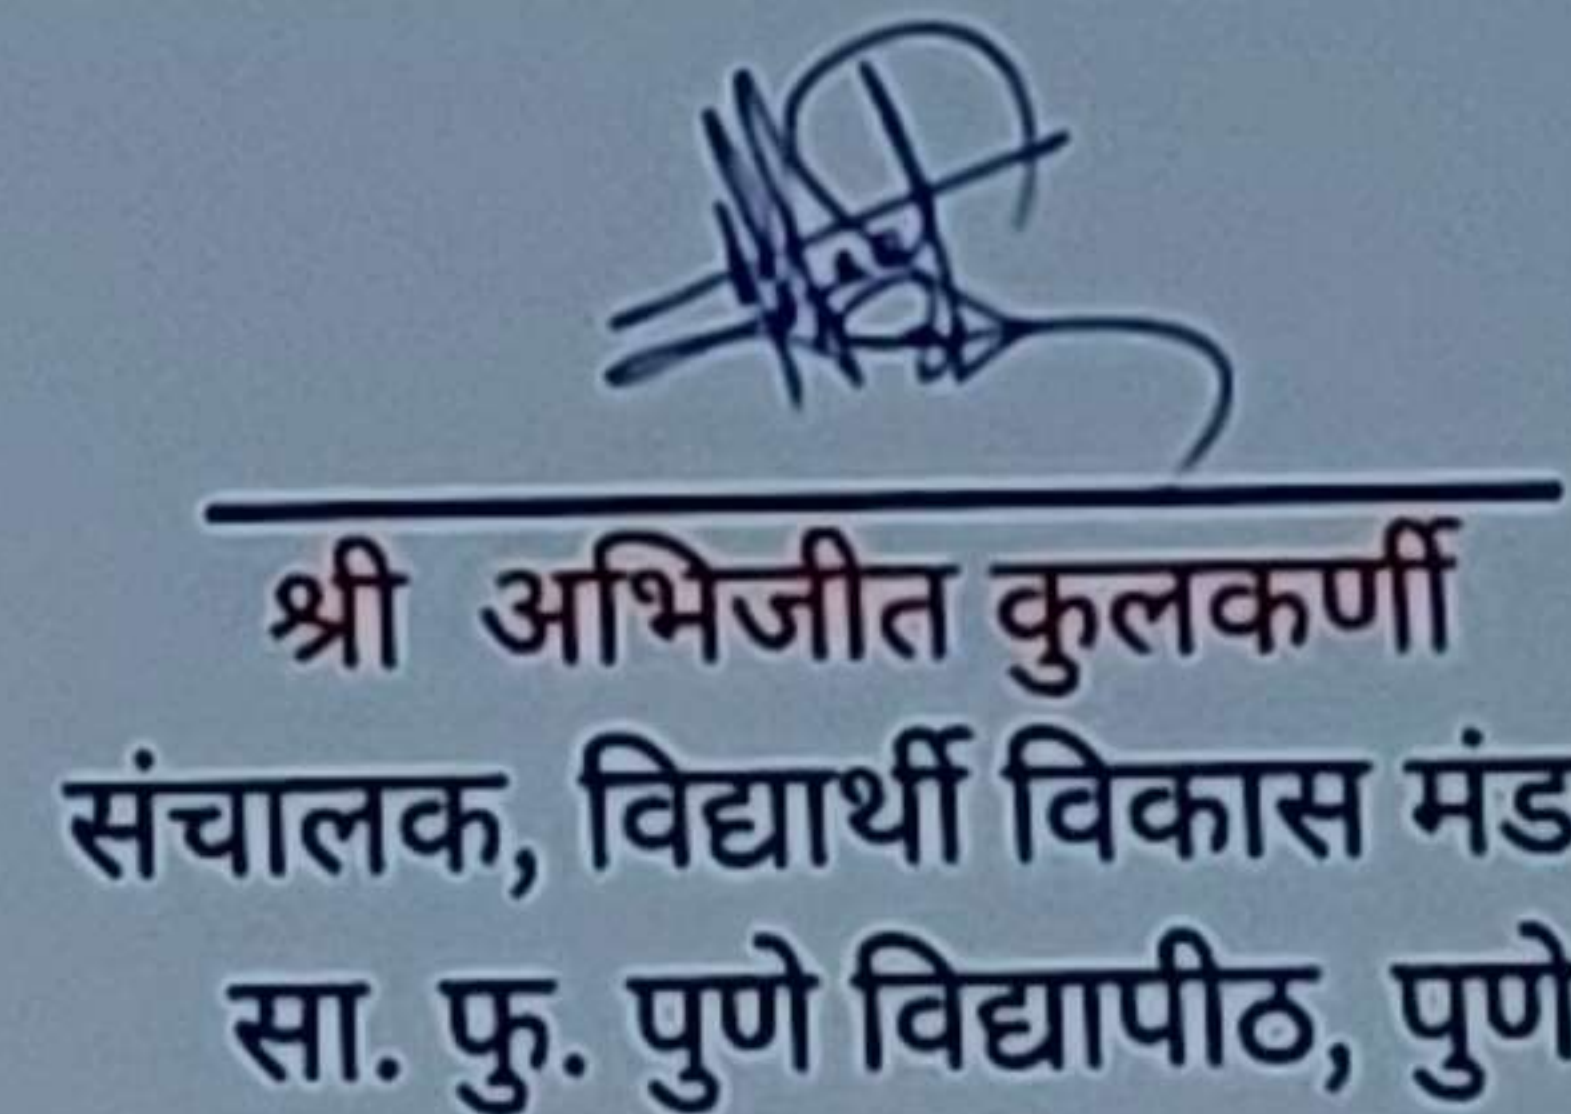 श्री अभिजीत कुलकर्णी
संचालक, विद्यार्थी विकास मंड
सा. फु. पुणे विद्यापीठ, पुणे